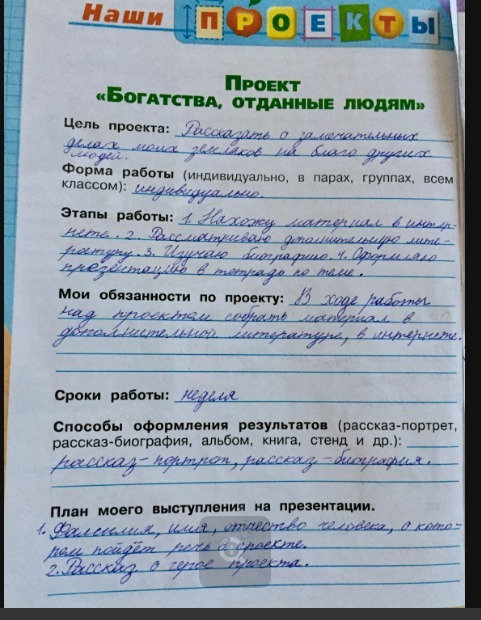 Наши ПРОЕКТЫ
ПРОЕКТ
«БОГАТСТВА, ОТДАННЫЕ ЛЮДЯМ»
Цель проекта: Рассказать о замечательных
делах моих земляков на благо других
людей.
Форма работы (индивидуально, в парах, группах, всем
классом): индивидуально.
Этапы работы: 1. Нахожу материал в интер-
нете. 2. Рассматриваю дополнительную лите-
ратуру. 3. Изучаю биографию. 4. Оформляю
презентацию в тетради по теме.
Мои обязанности по проекту: В ходе работы
над проектом собрать материал в
дополнительной литературе, в интернете.
Сроки работы: неделя
Способы оформления результатов (рассказ-портрет,
рассказ-биография, альбом, книга, стенд и др.):
рассказ-портрет, рассказ-биография.
План моего выступления на презентации.
1. Фамилия, имя, отчество человека, о кото-
ром пойдёт речь в проекте.
2. Рассказ о герое проекта.